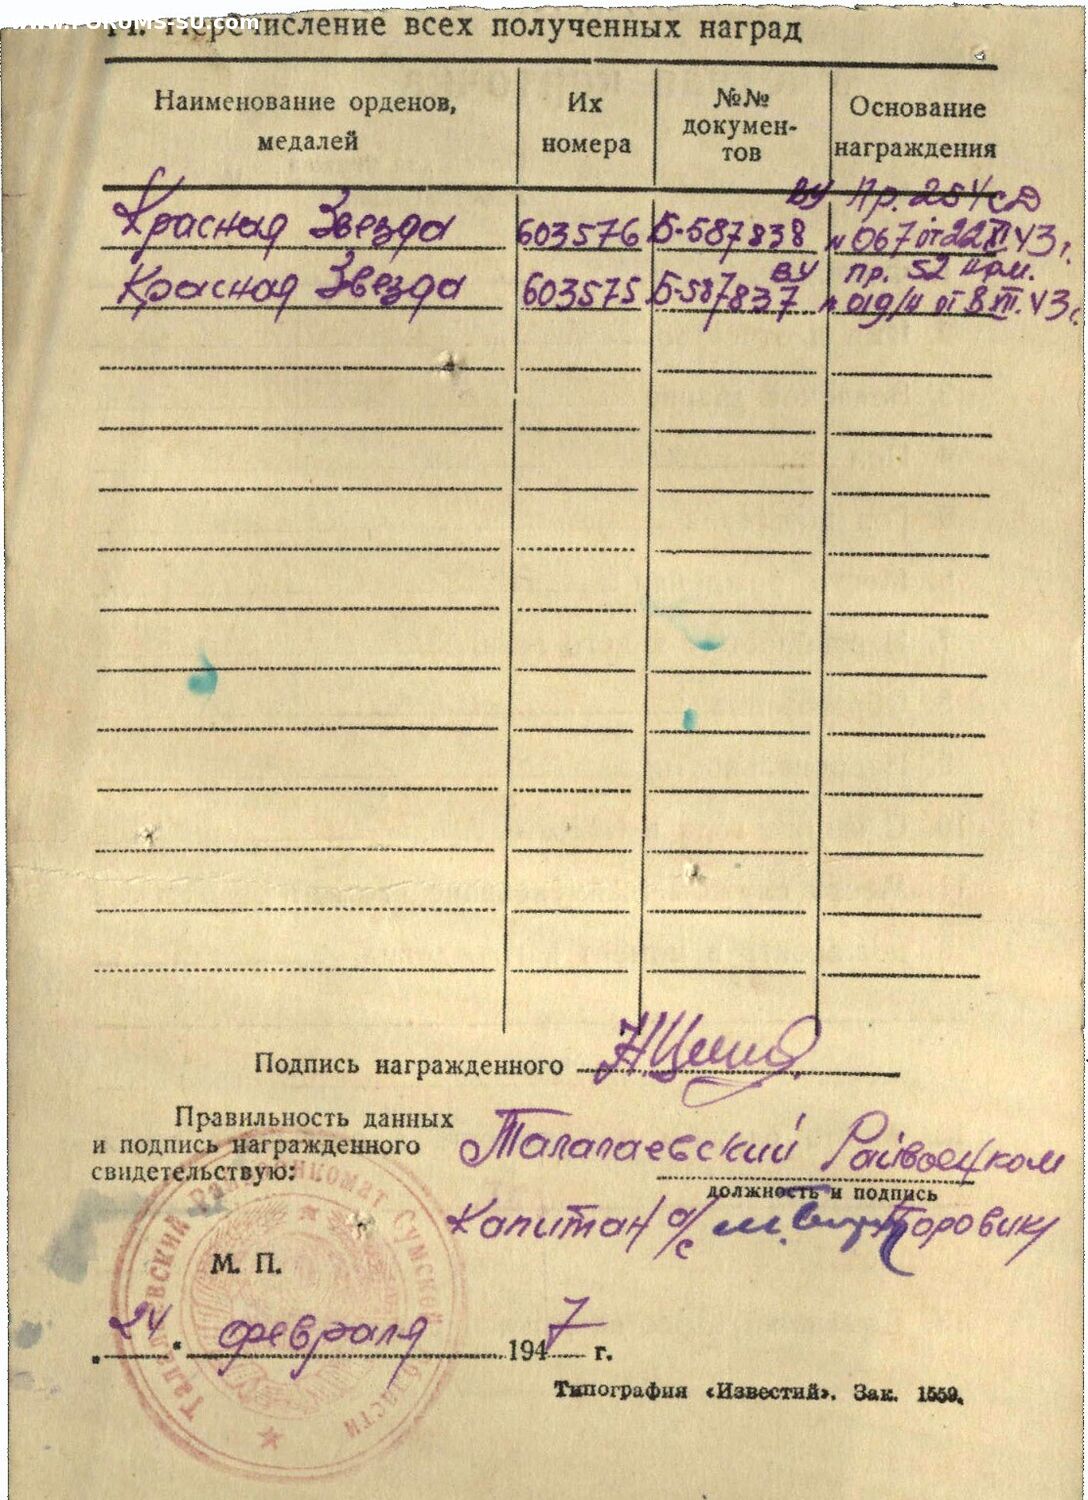 www.FORUMS-SU.com
14. Перечисление всех полученных наград
Наименование орденов, медалей
Их номера
№№ докумен-
тов
Основание награждения
Красная Звезда 603576 Б-587838 ВУ Пр. 254 сД
№ 067 от 22 XI 43 г.
Красная Звезда 603575 Б-587837 ВУ пр. 52 арм.
№ 019/н от 8 XII. 43 г.
Подпись награжденного
Правильность данных
и подпись награжденного
свидетельствую:
Талалаевский Райвоенком
должность и подпись
Капитан а/с Боровик
М. П.
Талалаевский Райвоенкомат Сумской области
„24“ февраля 1947 г.
Типография «Известий». Зак. 1559.